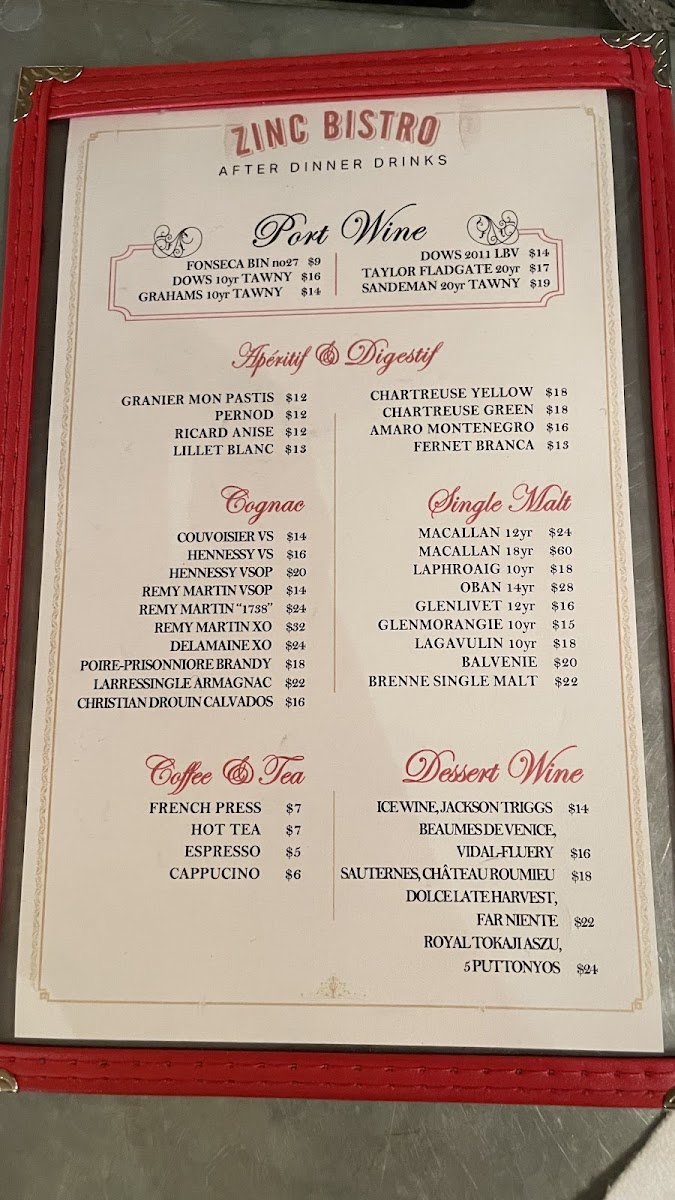 ZINC BISTRO
AFTER DINNER DRINKS
Port Wine
FONSECA BIN no27 $9
DOWS 10yr TAWNY $16
GRAHAMS 10yr TAWNY $14
DOWS 2011 LBV $14
TAYLOR FLADGATE 20yr $17
SANDEMAN 20yr TAWNY $19
Apéritif & Digestif
GRANIER MON PASTIS $12
PERNOD $12
RICARD ANISE $12
LILLET BLANC $13
CHARTREUSE YELLOW $18
CHARTREUSE GREEN $18
AMARO MONTENEGRO $16
FERNET BRANCA $13
Cognac
COUVOISIER VS $14
HENNESSY VS $16
HENNESSY VSOP $20
REMY MARTIN VSOP $14
REMY MARTIN “1738” $24
REMY MARTIN XO $32
DELAMAINE XO $24
POIRE-PRISONNIORE BRANDY $18
LARRESSINGLE ARMAGNAC $22
CHRISTIAN DROUIN CALVADOS $16
Single Malt
MACALLAN 12yr $24
MACALLAN 18yr $60
LAPHROAIG 10yr $18
OBAN 14yr $28
GLENLIVET 12yr $16
GLENMORANGIE 10yr $15
LAGAVULIN 10yr $18
BALVENIE $20
BRENNE SINGLE MALT $22
Coffee & Tea
FRENCH PRESS $7
HOT TEA $7
ESPRESSO $5
CAPPUCINO $6
Dessert Wine
ICE WINE, JACKSON TRIGGS $14
BEAUMES DE VENICE,
VIDAL-FLUERY $16
SAUTERNES, CHÂTEAU ROUMIEU $18
DOLCE LATE HARVEST,
FAR NIENTE $22
ROYAL TOKAJI ASZU,
5 PUTTONYOS $24